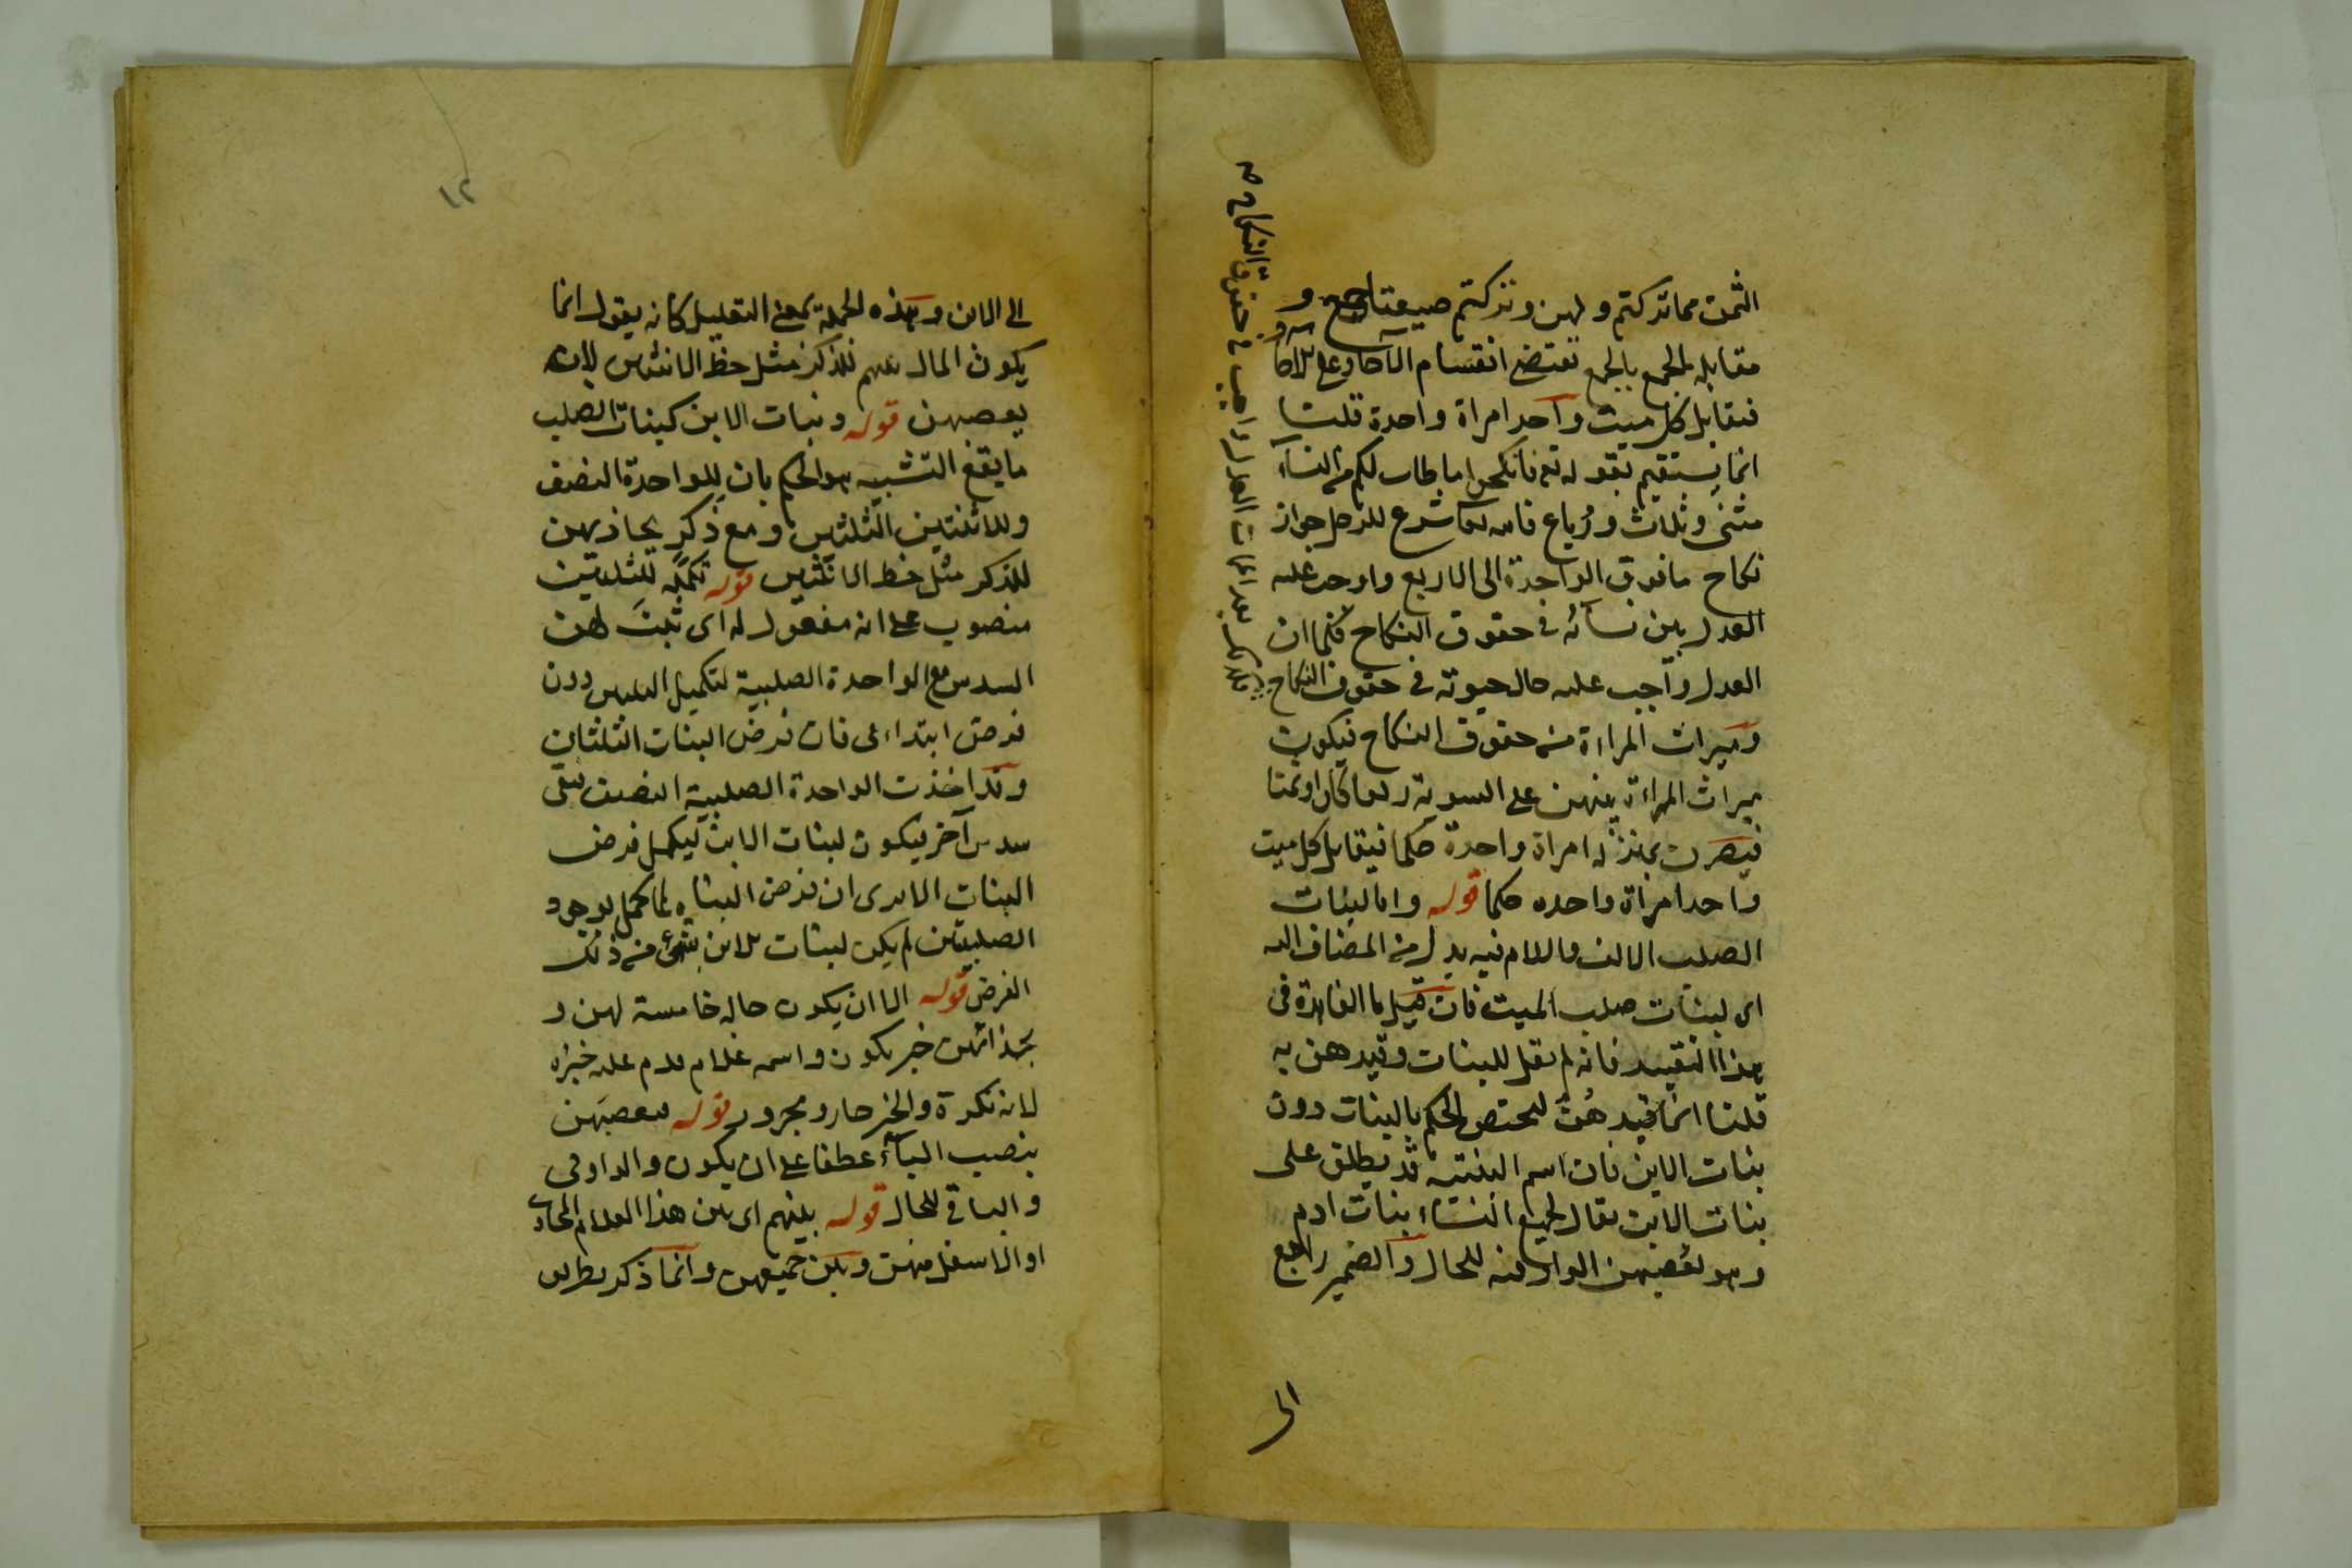 الثمن مما تركتم ولهن وتركتم صيغتا جمع و
مقابلة الجمع بالجمع تقتضي انقسام الآحاد على الآحاد
فيقابل كل ميت واحد امراة واحدة قلنا
انما يستقيم بقوله تع فانكحوا ما طاب لكم من النسآء
مثنى وثلاث ورُباع فانه كما شرع للرجل جواز
نكاح ما فوق الواحدة الى الاربع واوجب عليه
العدل بين نسآئه في حقوق النكاح فكما ان
العدل واجب عليه حال حيوته في حقوق النكاح
وميراث المراءة من حقوق النكاح فيكون
ميراث المراءة بينهن على السوية ربعا كان او ثمنا
فيصرن بمنزلة امراة واحدة حكما فيقابل كل ميت
واحد امراة واحدة حكما قوله واما لبنات
الصلب الالف واللام فيه بدل من المضاف اليه
اى لبنات صلب الميت فان قيل ما الفائدة فى
هذا التقييد فانه لم يقل للبنات وقيدهن به
قلنا انما قيدهن ليختص الحكم بالبنات دون
بنات الابن فان اسم البنت قد يطلق على
بنات الابن يقال لجميع النسآء بنات ادم
وهو يعصبهن الواو فيه للحال والضمير راجع
الى
فكذلك بعد الممات العدل واجب في حقوق النكاح صح
١٢
الى الابن وهذه الجملة بمعنى التعليل كانه يقول انما
يكون المال بينهم للذكر مثل حظ الانثيين لانه
يعصبهن قوله وبنات الابن كبنات الصلب
ما يقع التشبيه هو الحكم بان للواحدة النصف
وللاثنتين الثلثين ومع ذكر يحاذيهن
للذكر مثل حظ الانثيين قوله تكملة للثلثين
منصوب على انه مفعول له اى ثبت لهن
السدس مع الواحدة الصلبية لتكميل الثلثين دون
فرض ابتداءى فان فرض البنات الثلثان
وقد اخذت الواحدة الصلبية النصف بقى
سدس آخر فيكون لبنات الابن ليكمل فرض
البنات الا يرى ان فرض البنات لما كمل بوجود
الصلبيتين لم يكن لبنات الابن شئ من ذلك
الفرض قوله الا ان يكون حالة خامسة لهن و
بحذائهن خبر يكون واسمه غلام قدم عليه خبره
لانه نكرة والخبر جار ومجرور قوله فيعصبهن
بنصب البآء عطفا على ان يكون والواو فى
والباقى للحال قوله بينهم اى بين هذا الغلام المحاذى
او الاسفل منهن وبين جميعهن وانما ذكر بطريق